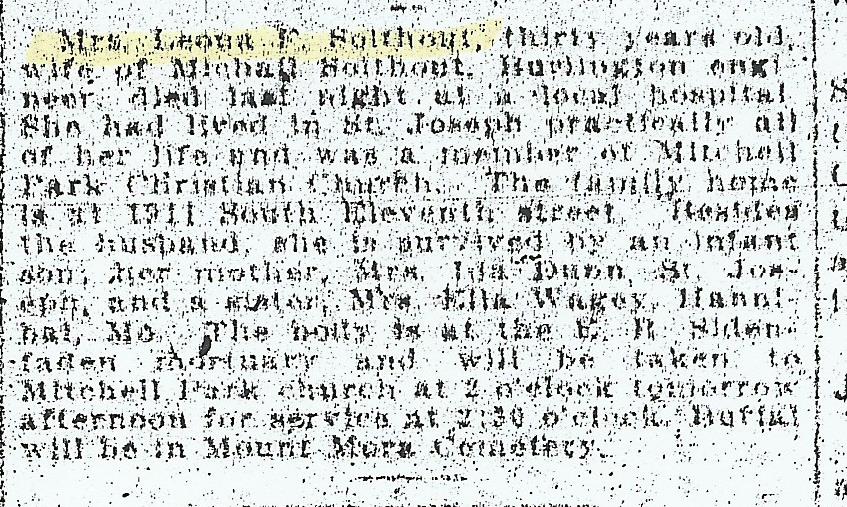 Mrs. Leona F. Solthout, thirty years old,
wife of Michall Solthout, Burlington engi-
neer, died last night at a local hospital.
She had lived in St. Joseph practically all
of her life and was a member of Mitchell
Park Christian Church. The family home
is at 1911 South Eleventh street. Besides
the husband, she is survived by an infant
son; her mother, Mrs. Ida Dunn, St. Jos-
eph, and a sister, Mrs. Ella Wagey, Hanni-
bal, Mo. The body is at the E. R. Siden-
faden mortuary and will be taken to
Mitchell Park church at 2 o'clock tomorrow
afternoon for service at 2:30 o'clock. Burial
will be in Mount Mora Cemetery.